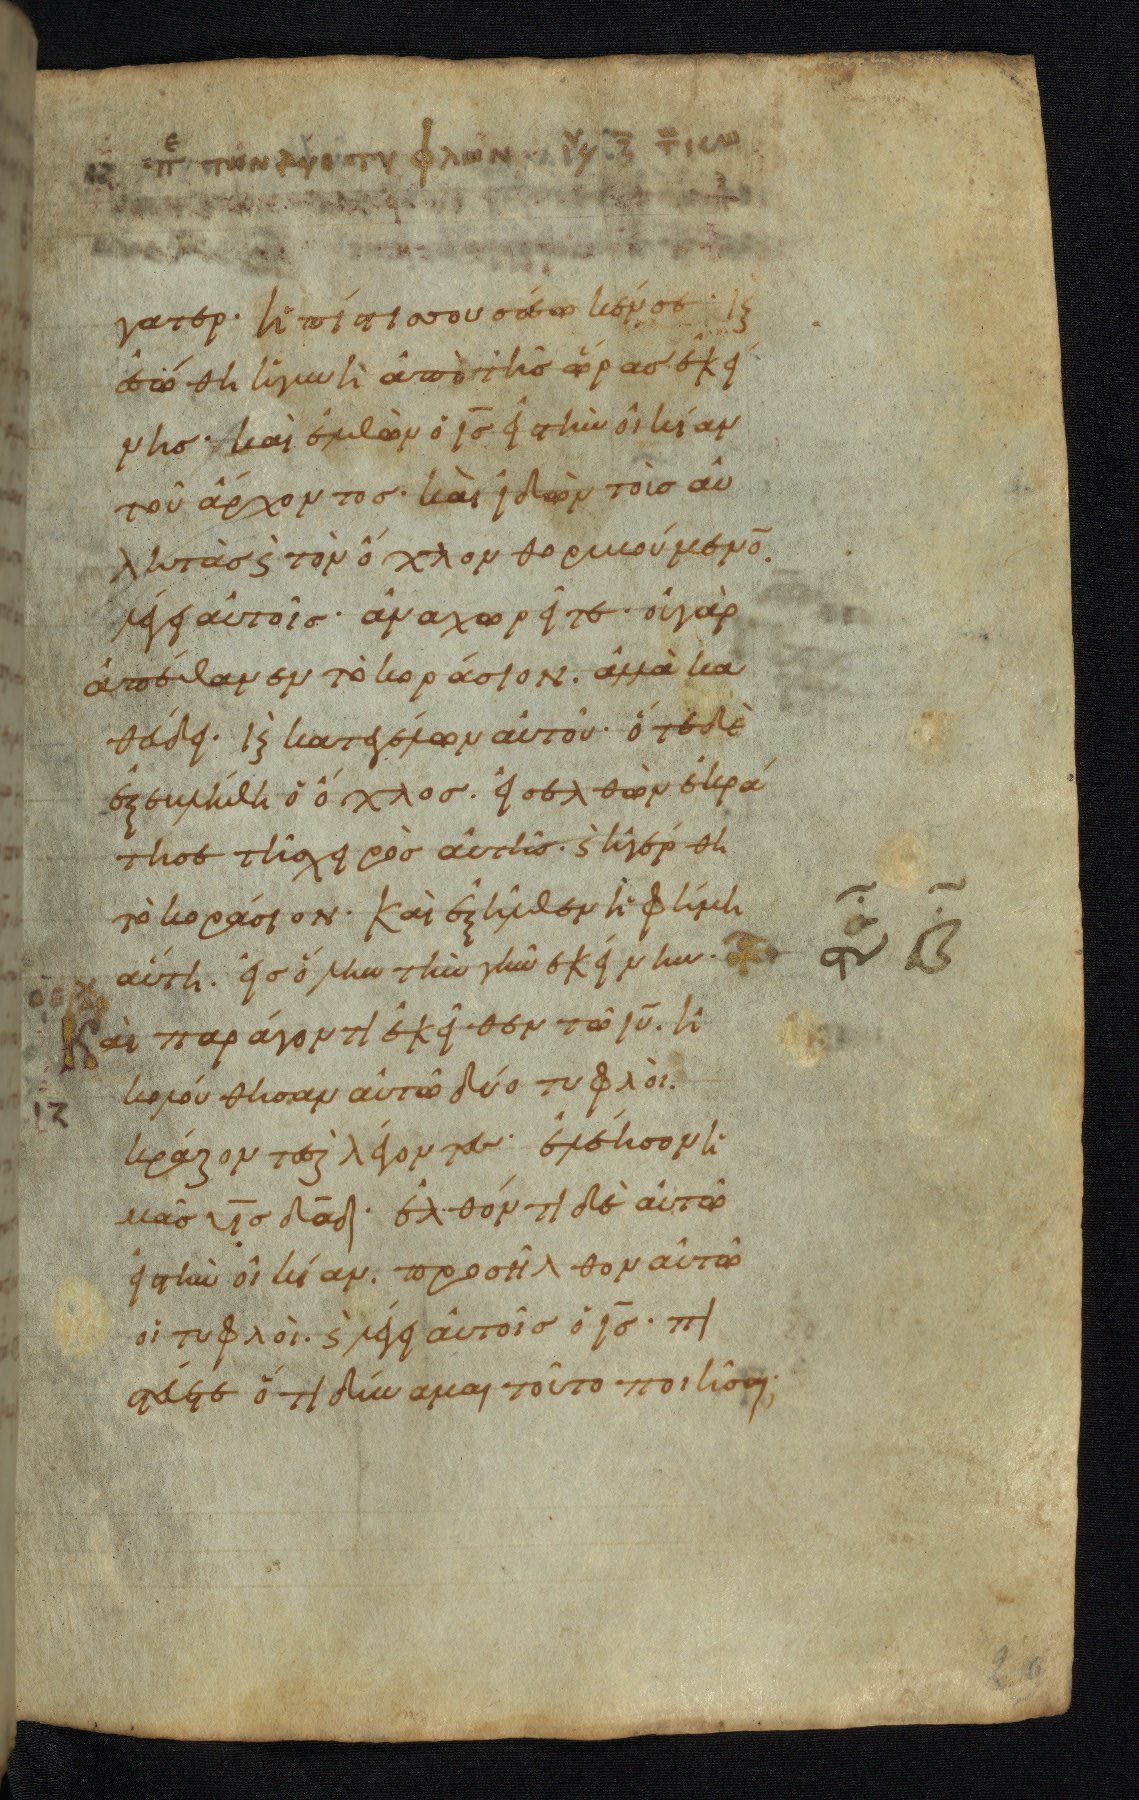 ιζ πε των δυο τυφλων
γατερ· ἡ πίστισ σου σέσωκέν σε· κ(αὶ)
ἐσώθη ἡ γυνὴ ἀπὸ τῆσ ὥρασ ἐκεί
νησ· καὶ ἐλθὼν ὁ ι̅σ̅ εἰσ τὴν οἰκίαν
τοῦ ἄρχοντοσ· καὶ ἰδὼν τοὺσ αὐ
λητὰσ κ(αὶ) τὸν ὄχλον θορυβούμενο̅·
λέγει αὐτοῖσ· ἀναχωρεῖτε· οὐ γὰρ
ἀπέθανεν τὸ κοράσιον· ἀλλὰ κα
θεύδει· κ(αὶ) κατεγέλων αὐτοῦ· ὅτε δὲ
ἐξεβλήθη ὁ ὄχλοσ· εἰσελθὼν ἐκρά
τησε τῆσ χειρὸσ αὐτῆσ· κ(αὶ) ἠγέρθη
τὸ κοράσιον· Καὶ ἐξῆλθεν ἡ φήμη
αὕτη· εἰσ ὅλην τὴν γῆν ἐκείνην·
Καὶ παράγοντι ἐκεῖθεν τῶ ι̅υ̅· ἠ
κολούθησαν αὐτῶ δύο τυφλοὶ·
κράζοντεσ κ(αὶ) λέγοντεσ· ἐλέησον ἡ
μᾶσ υ̅ι̅ε̅ δα̅δ· ἐλθόντι δὲ αὐτῶ
εἰσ τὴν οἰκίαν· προσῆλθον αὐτῶ
οἱ τυφλοὶ· κ(αὶ) λέγει αὐτοῖσ ὁ ι̅σ̅· πι
στεύετε ὅτι δύναμαι τοῦτο ποιῆσαι;
ιζ